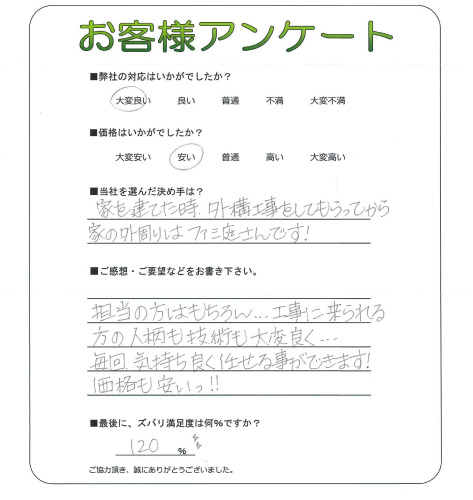 お客様アンケート
■弊社の対応はいかがでしたか？
大変良い 良い 普通 不満 大変不満
■価格はいかがでしたか？
大変安い 安い 普通 高い 大変高い
■当社を選んだ決め手は？
家を建てた時、外構工事をしてもらってから
家の外周りはファミ庭さんです!
■ご感想・ご要望などをお書き下さい。
担当の方はもちろん...工事に来られる
方の人柄も技術も大変良く...
毎回 気持ち良く任せる事ができます!
価格も安いっ!!
■最後に、ズバリ満足度は何%ですか？
120 %
ご協力頂き、誠にありがとうございました。